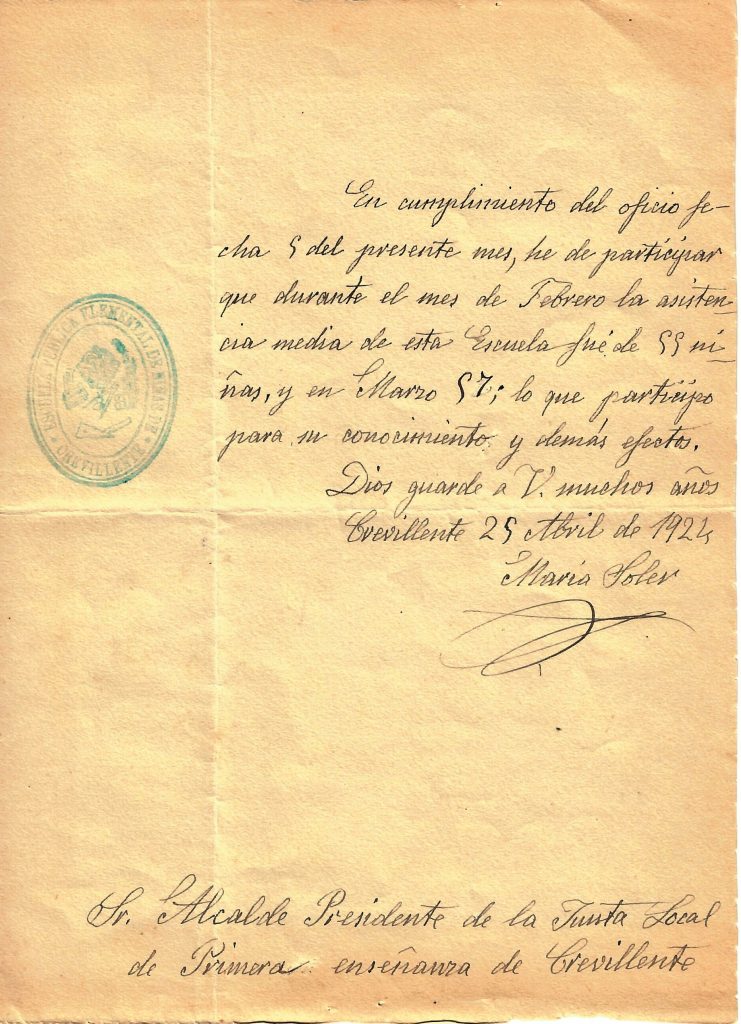 En cumplimiento del oficio fe-
cha 5 del presente mes, he de participar
que durante el mes de Febrero la asisten-
cia media de esta Escuela fué de 55 ni-
ñas, y en Marzo 57; lo que participo
para su conocimiento y demás efectos.
Dios guarde a V. muchos años
Crevillente 25 Abril de 1924
María Soler
ESCUELA PUBLICA ELEMENTAL DE NIÑAS DE
CREVILLENTE
Sr. Alcalde Presidente de la Junta Local
de Primera enseñanza de Crevillente